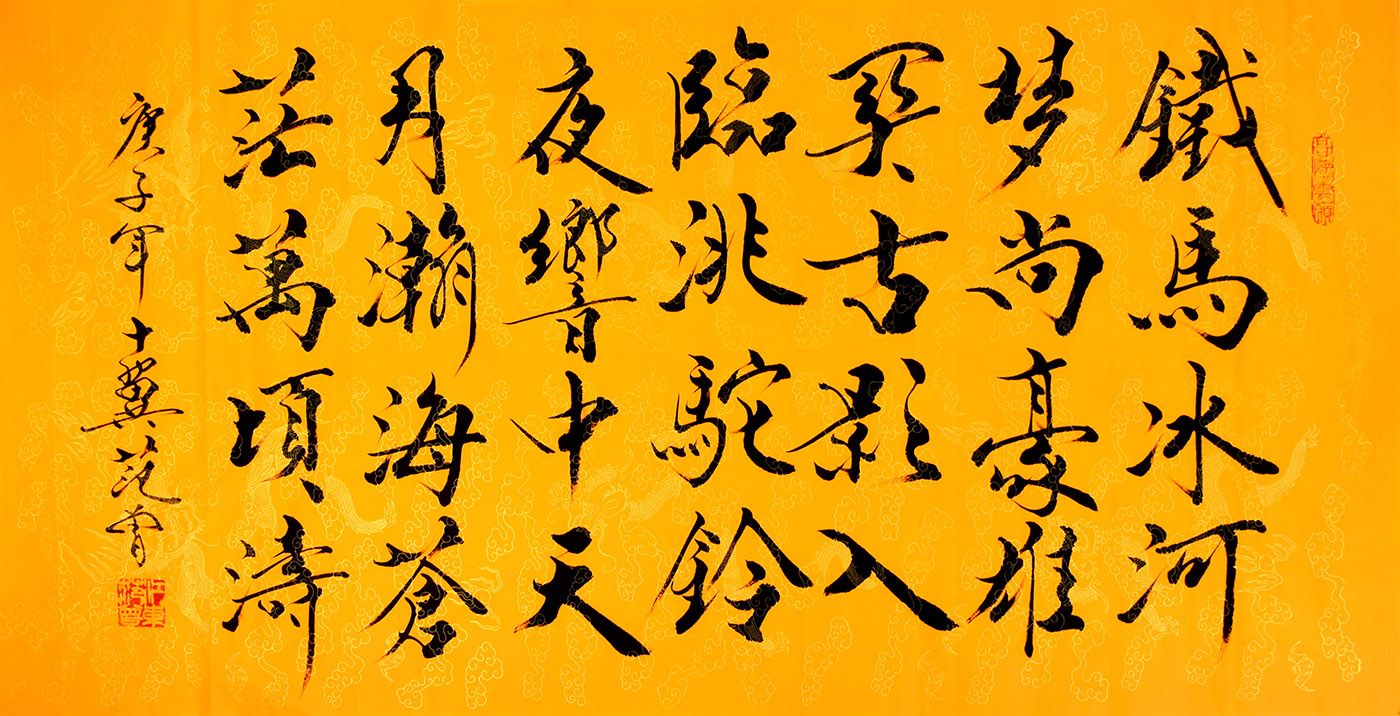 鐵馬冰河
梦尚豪雄
関古影入
臨洮駝鈴
夜響中天
月瀚海蒼
茫萬頃濤
庚子年十翼范曾